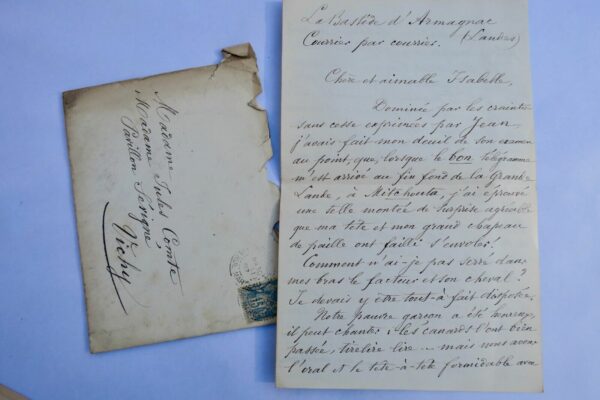 Madame
Madame Jules Comte
Pavillon Sévigné
Vichy
La Bastide d'Armagnac
Courrier par courrier. (Landes)
Chère et aimable Isabelle,
Dominée par les craintes
sans cesse exprimées par Jean,
j'avais fait mon deuil de son examen
au point, que, lorsque le bon télégramme
m'est arrivé au fin fond de la Grande
Lande, à Mitchouta, j'ai éprouvé
une telle montée de surprise agréable
que ma tête et mon grand chapeau
de paille ont failli s'envoler!
Comment n'ai-je pas serré dans
mes bras le facteur et son cheval?
Je devais y être tout-à fait disposée.
Notre pauvre garçon a été heureux,
il peut chanter: les canards l'ont bien
passée, tirelire lire – mais nous avons
l'oral et le tête-à-tête formidable avec